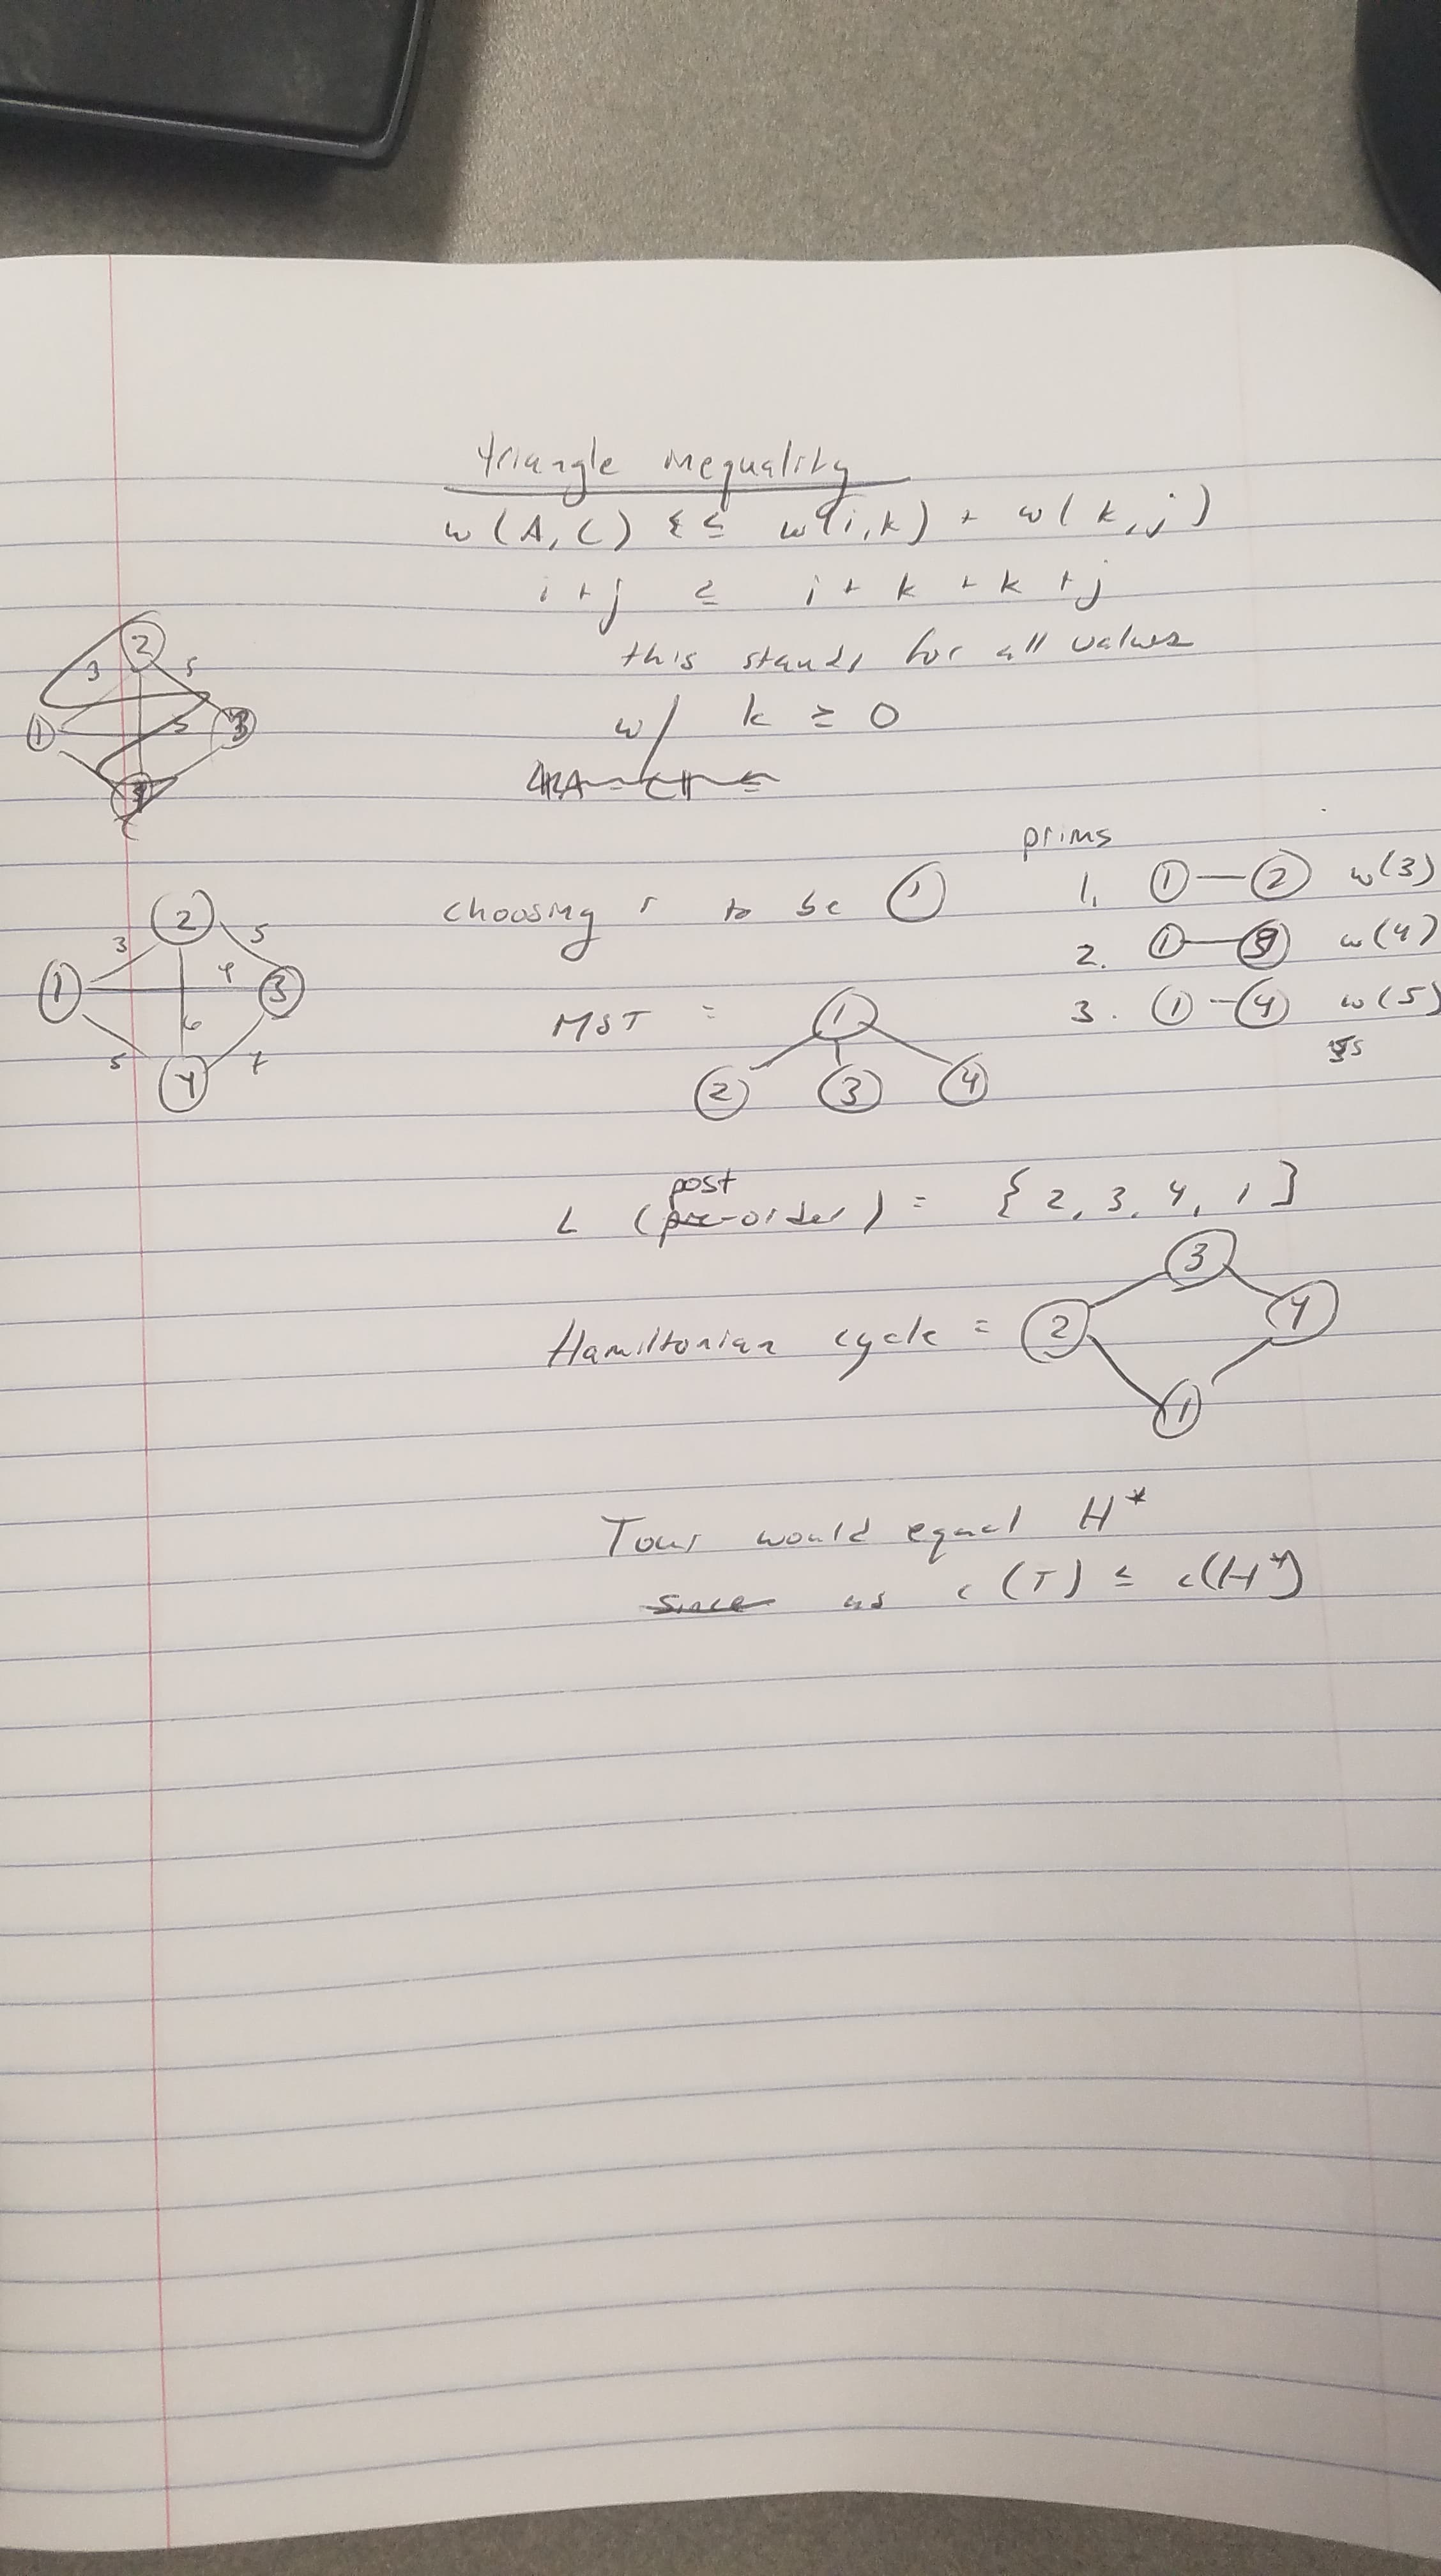 triangle inequality
w (A, C) ≤ w(i,k) + w(k,j)
i + j ≤ i + k + k + j
this stands for all values
w/ k ≥ 0
2
3 5
1 5 3
prims
1. 1 — 2 w(3)
choosing r to be 1
2. 1 — 3 w(4)
3. 1 - 4 w(5)
2
3 5
1 4 3
6
5 7
4
MST =
1
2 3 4
post
L (pre-order) = { 2, 3, 4, 1 }
Hamiltonian cycle =
3
2 4
1
Tour would equal H*
since as c(T) ≤ c(H*)